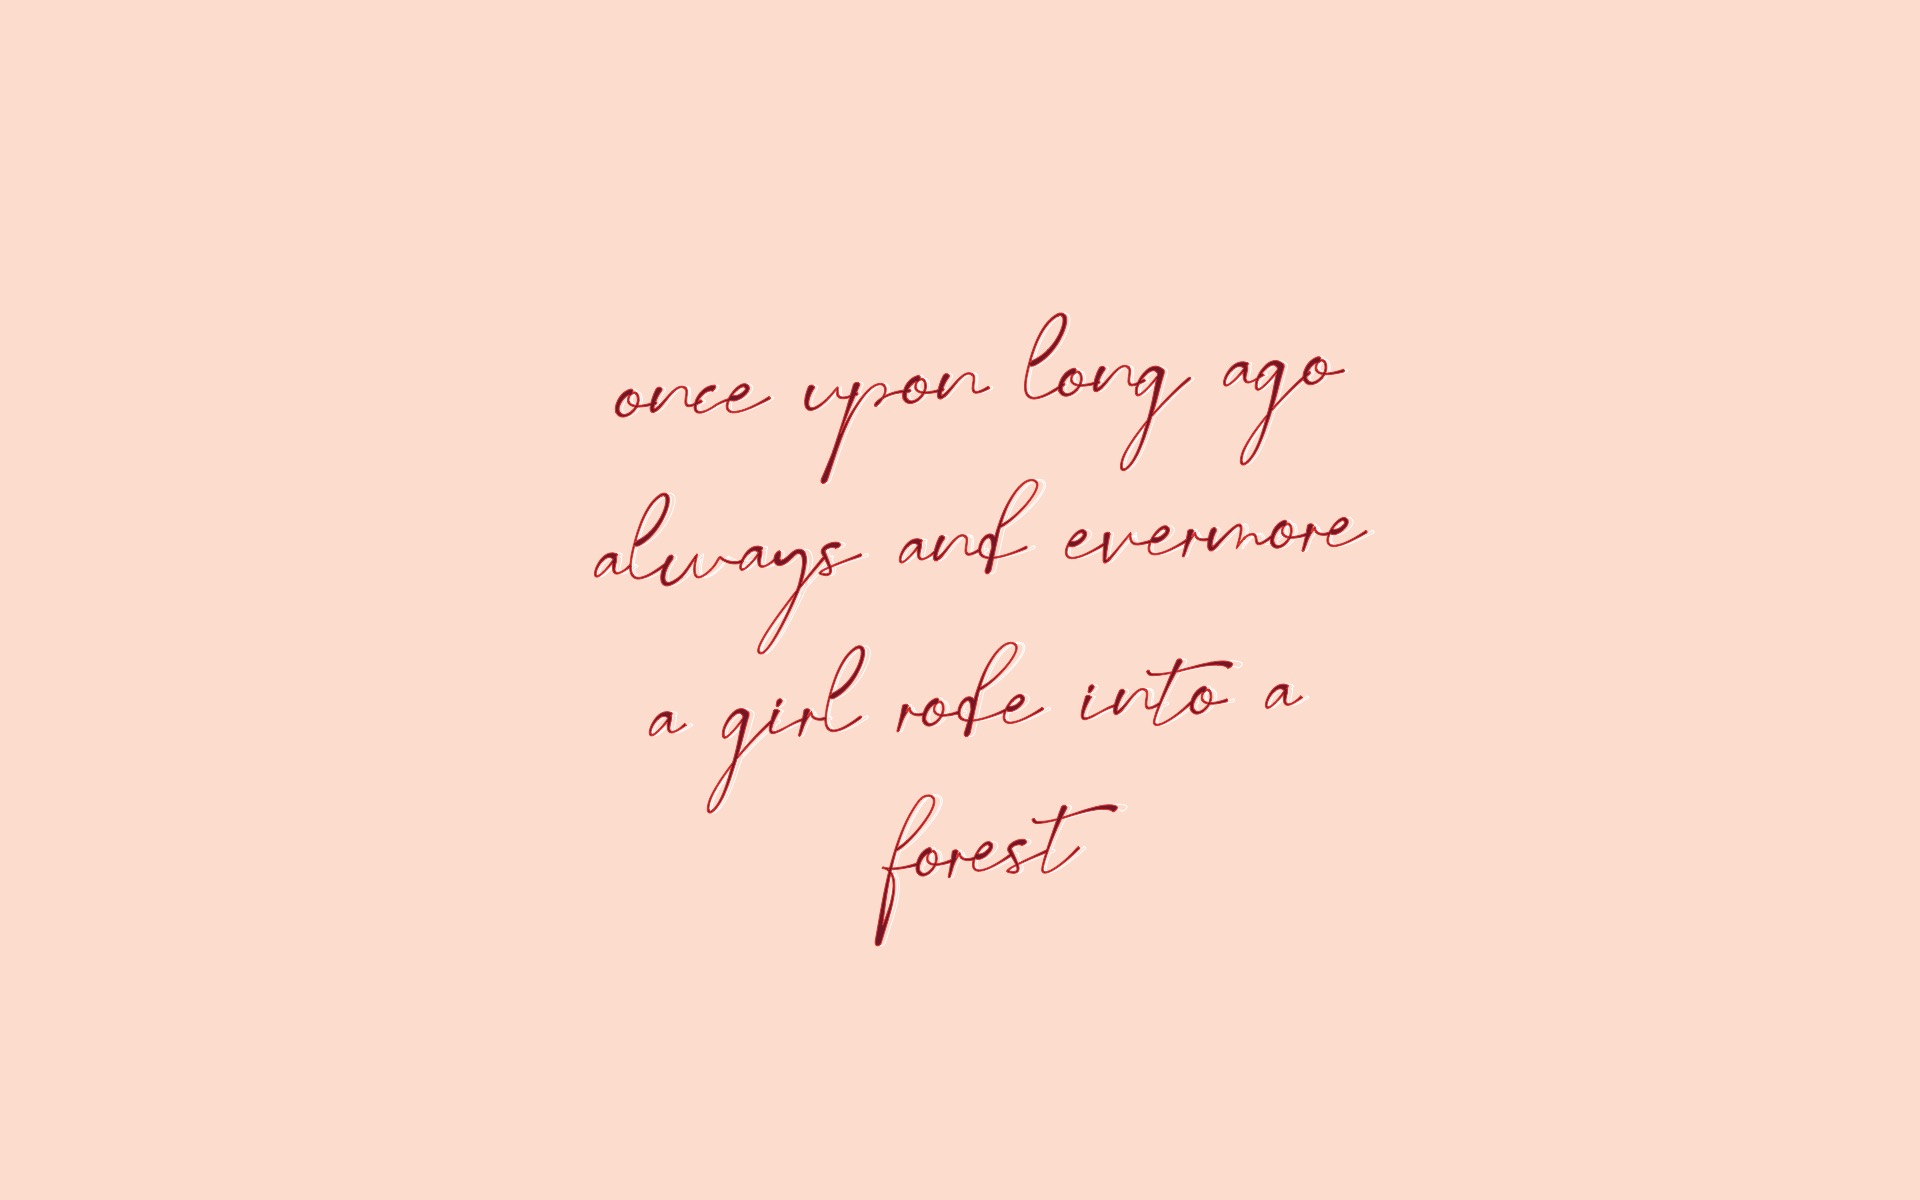 once upon long ago
always and evermore
a girl rode into a
forest